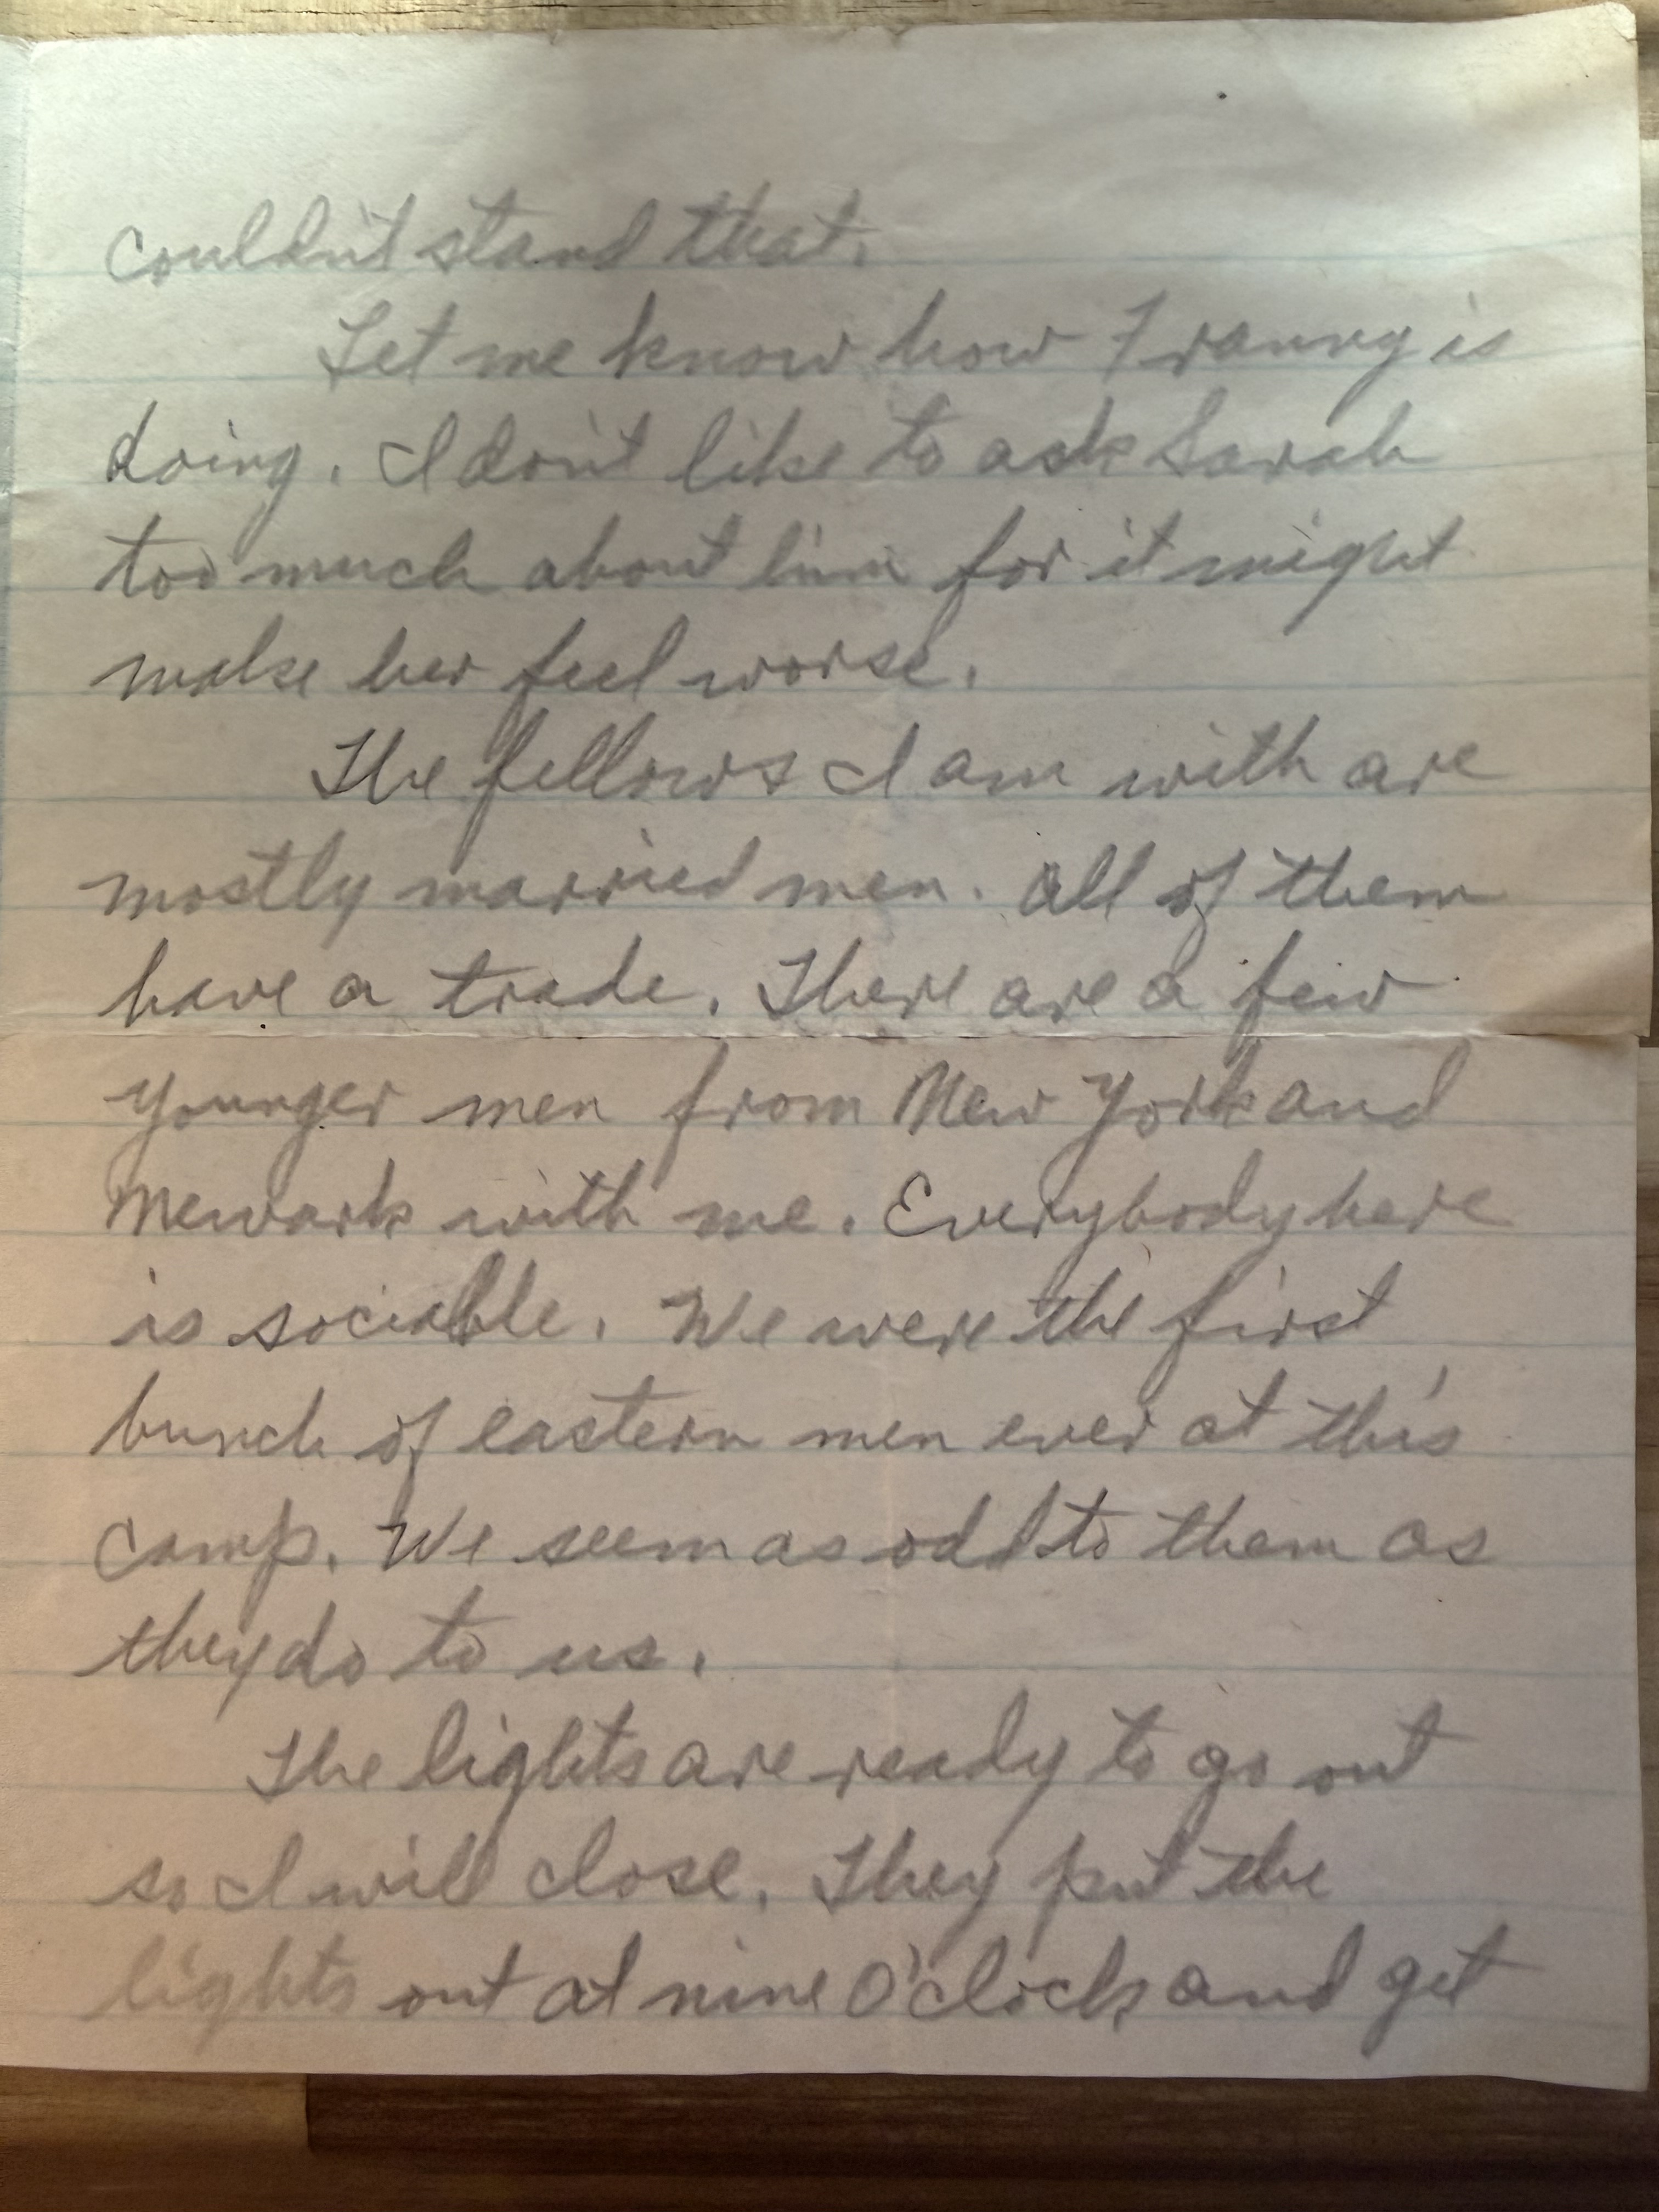 couldn't stand that.
Let me know how Franny is
doing. I don't like to ask Sarah
too much about him for it might
make her feel worse.
The fellows I am with are
mostly married men. All of them
have a trade. There are a few
younger men from New York and
Newark with me. Everybody here
is sociable. We were the first
bunch of eastern men ever at this
camp. We seem as odd to them as
they do to us.
The lights are ready to go out
so I will close. They put the
lights out at nine O'clock and get